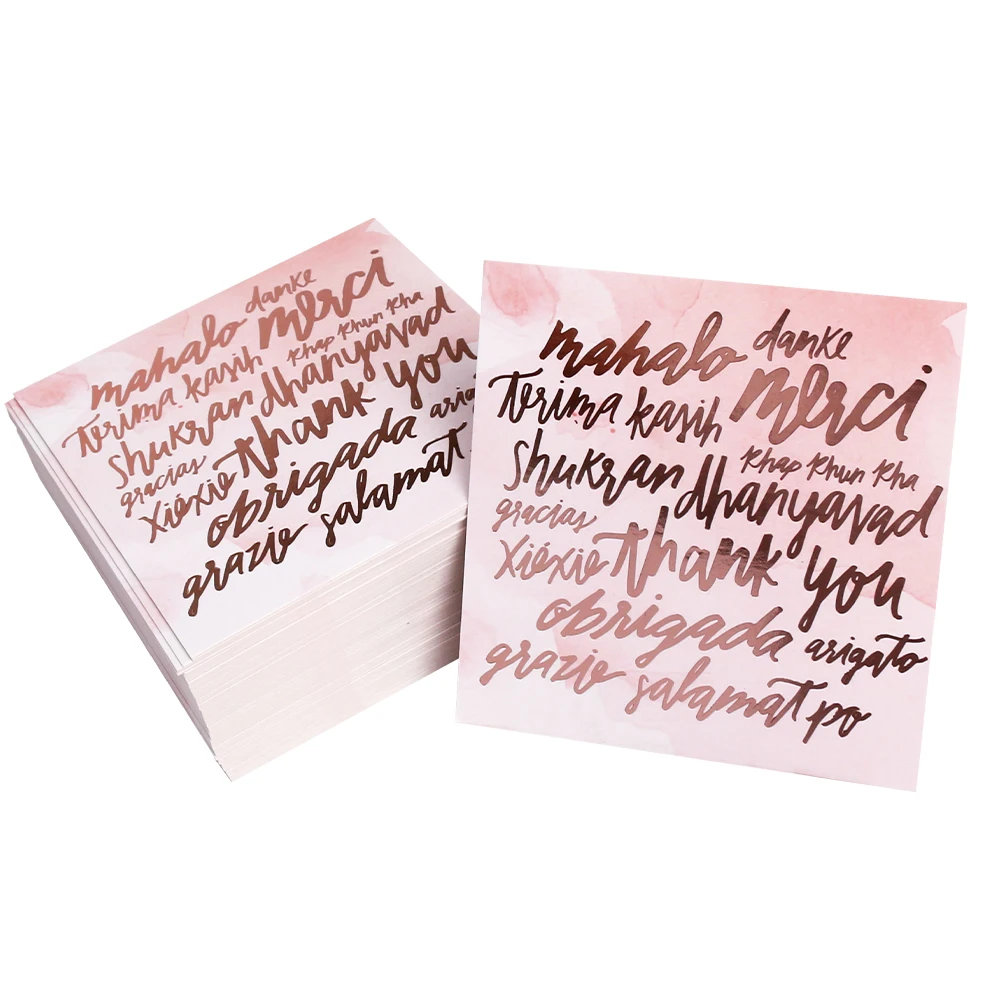 mahalo damke
merci
Terima kasih
khap khun kha
shukran dhanyavad
gracias
xiéxie thank you
obrigada arigato
grazie salamat po
mahalo damke
merci
Terima kasih
khap khun kha
shukran dhanyavad
gracias
xiéxie thank you
obrigada
grazie salamat